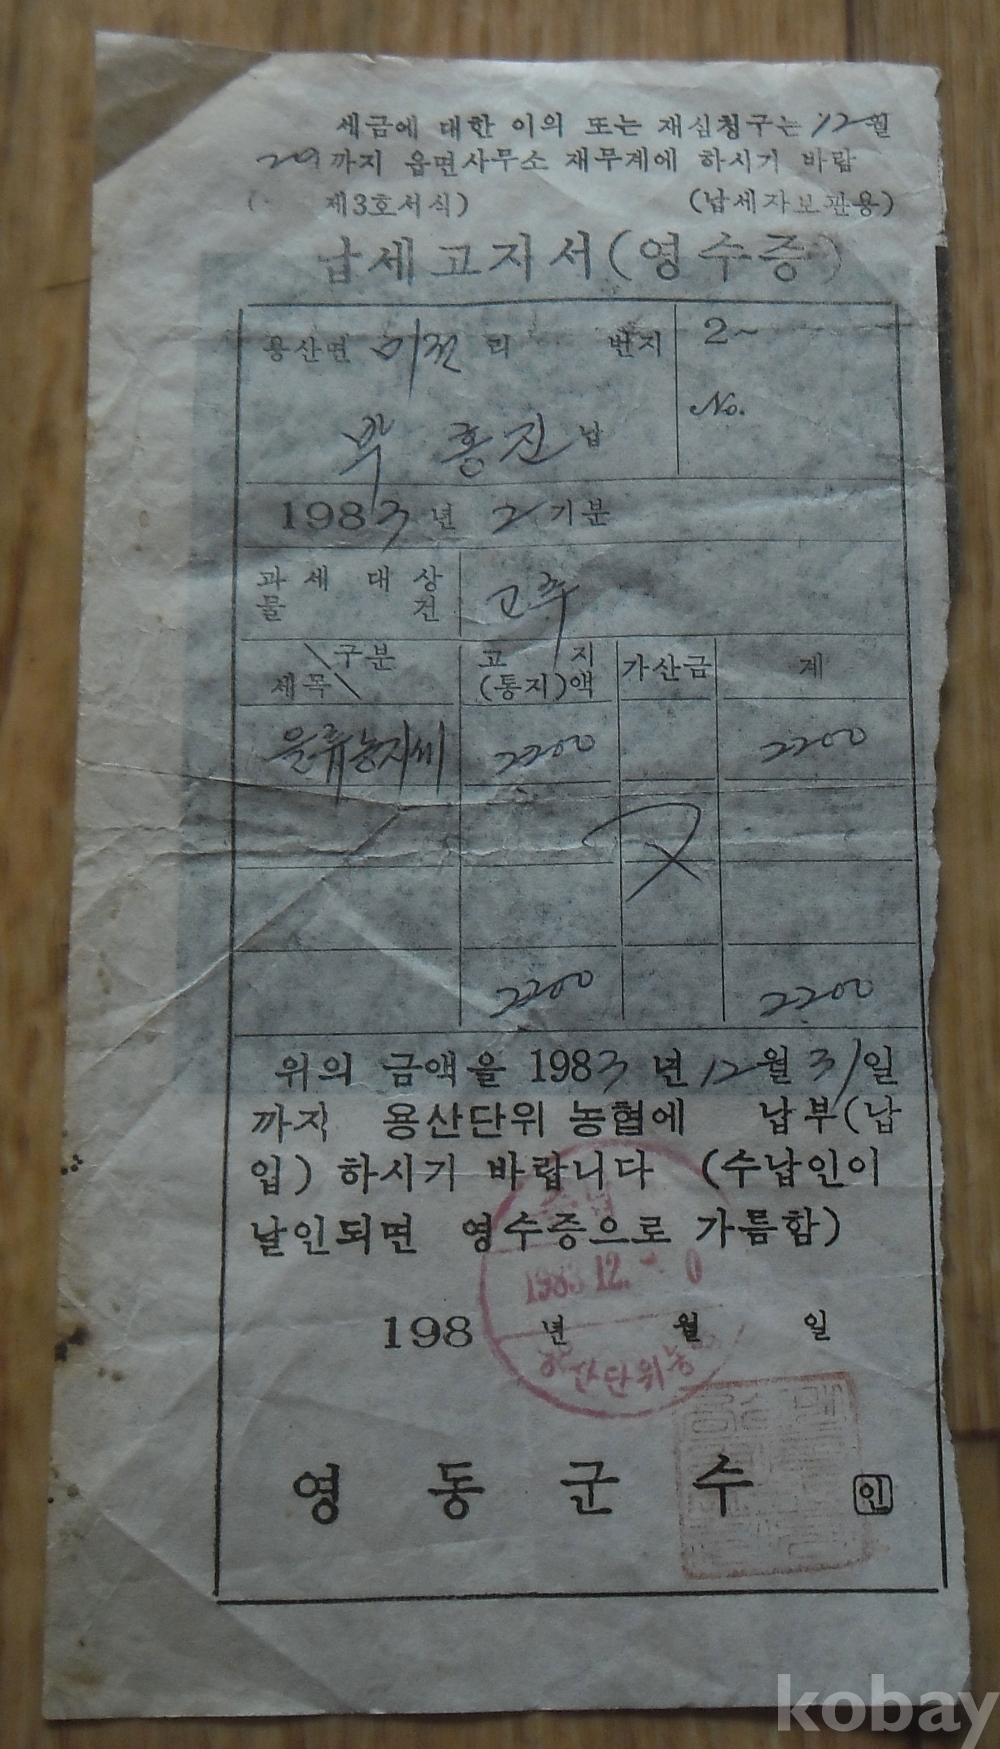 세금에 대한 이의 또는 재심청구는 12월
29까지 읍면사무소 재무계에 하시기 바람
제3호서식) (납세자보관용)
납세고지서(영수증)
용산면 미전리 번지 2~
No.
박홍진 납
1983년 2기분
과세대상
물건 고추
구분 고지 가산금 계
세목 (통지)액
을류농지세 2200 2200
2200 2200
위의 금액을 1983년 12월 31일
까지 용산단위 농협에 납부(납
입) 하시기 바랍니다 (수납인이
날인되면 영수증으로 가름함)
1983 12. 0
198 년 월 일
용산단위농
영동군수 인
kobay